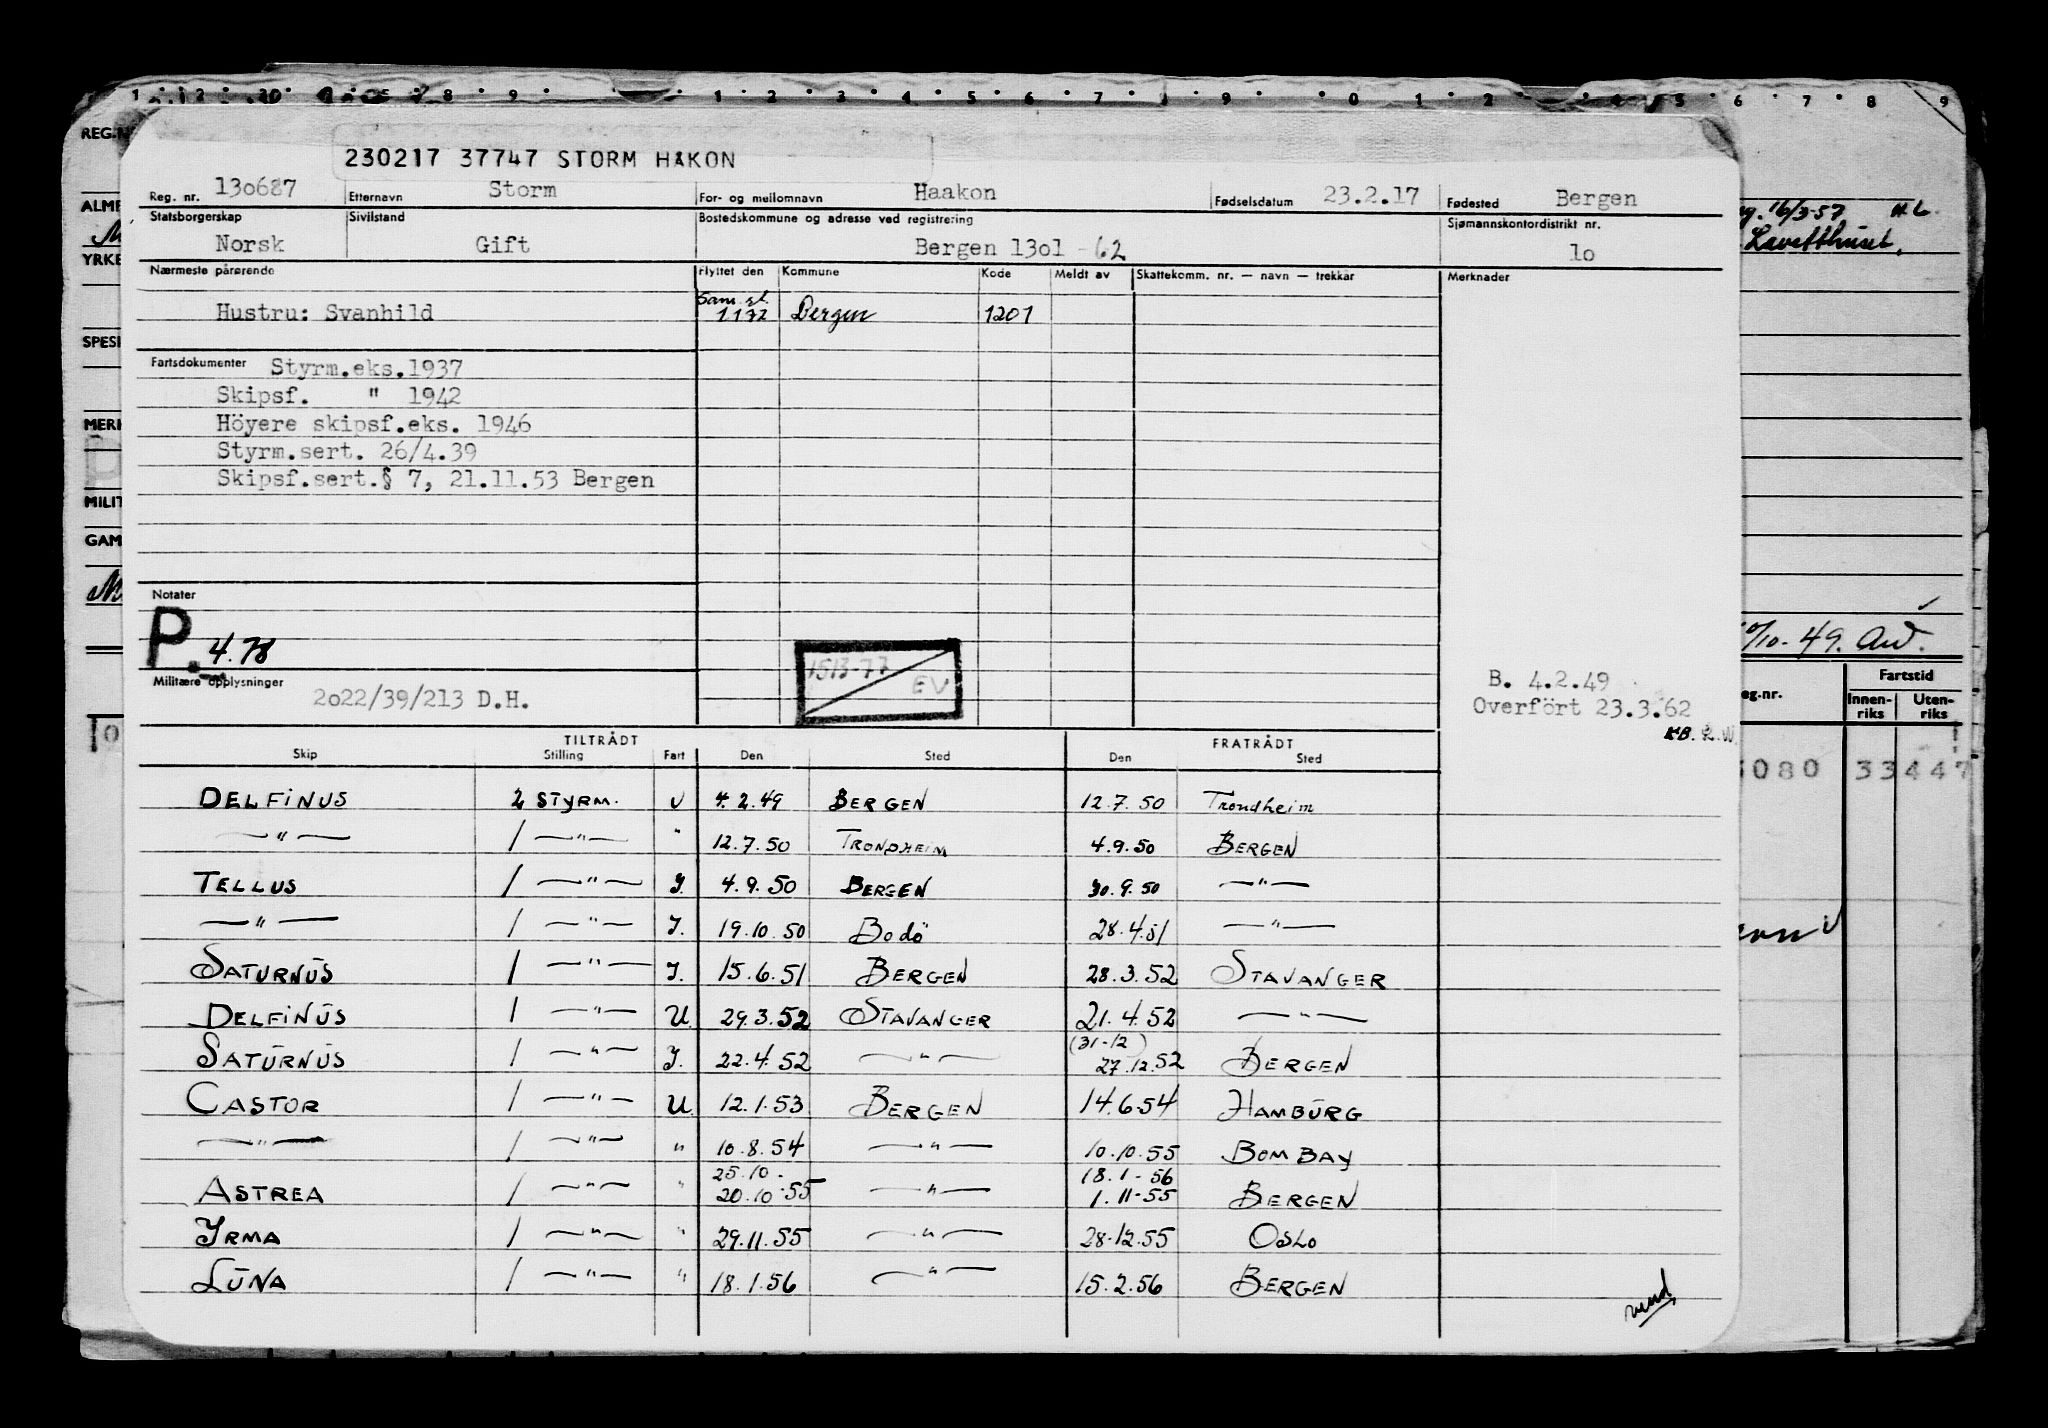 1 2 3 4 5 6 7 8 9 0 1 2 3 4 5 6 7 8 9
REG.N
230217 37747 STORM HÅKON
Reg. nr. 130687 Etternavn Storm For- og mellomnavn Haakon Fødselsdatum 23.2.17 Fødested Bergen
Statsborgerskap Sivilstand Bostedskommune og adresse ved registrering Sjømannskontordistrikt nr.
Norsk Gift Bergen 13o1 - 62 1o
ALME
YRKE
16/3-57 H.L.
Lavetthuset.
Nærmeste pårørende Flyttet den Kommune Kode Meldt av Skattekomm. nr. — navn — trekkår Merknader
Hustru: Svanhild Sam. sl. 1172 Bergen 1201
SPESI
Fartsdokumenter Styrm.eks.1937
Skipsf. " 1942
MERK
Höyere skipsf.eks. 1946
Styrm.sert. 26/4.39
Skipsf.sert.§ 7, 21.11.53 Bergen
MILIT
GAM
Notater
P. 4.78
1513-77
EV
Militære opplysninger
2o22/39/213 D.H.
B. 4.2.49
Overfört 23.3.62
KB. R.W.
10/10-49. Aw.
Fartstid
eg.nr. Innen-riks Uten-riks
5080 33447
TILTRÅDT FRATRÅDT
Skip Stilling Fart Den Sted Den Sted
DELFINUS 2 STYRM. U 4.2.49 BERGEN 12.7.50 Trondheim
—"— 1 —"— " 12.7.50 TRONDHEIM 4.9.50 BERGEN
TELLUS 1 —"— I. 4.9.50 BERGEN 30.9.50 —"—
—"— 1 —"— I. 19.10.50 Bodö 28.4.51 —"—
SATURNUS 1 —"— I. 15.6.51 BERGEN 28.3.52 STAVANGER
DELFINUS 1 —"— U. 29.3.52 STAVANGER 21.4.52 —"—
SATURNUS 1 —"— I. 22.4.52 —"— (31-12) 27.12.52 BERGEN
CASTOR 1 —"— U. 12.1.53 BERGEN 14.6.54 HAMBURG
—"— 1 —"— " 10.8.54 —"— 10.10.55 BOMBAY
25.10- 18.1-56
ASTREA 1 —"— " 20.10.55 —"— 1.11-55 BERGEN
IRMA 1 —"— " 29.11.55 —"— 28.12.55 OSLO
LUNA 1 —"— " 18.1.56 —"— 15.2.56 BERGEN
vend